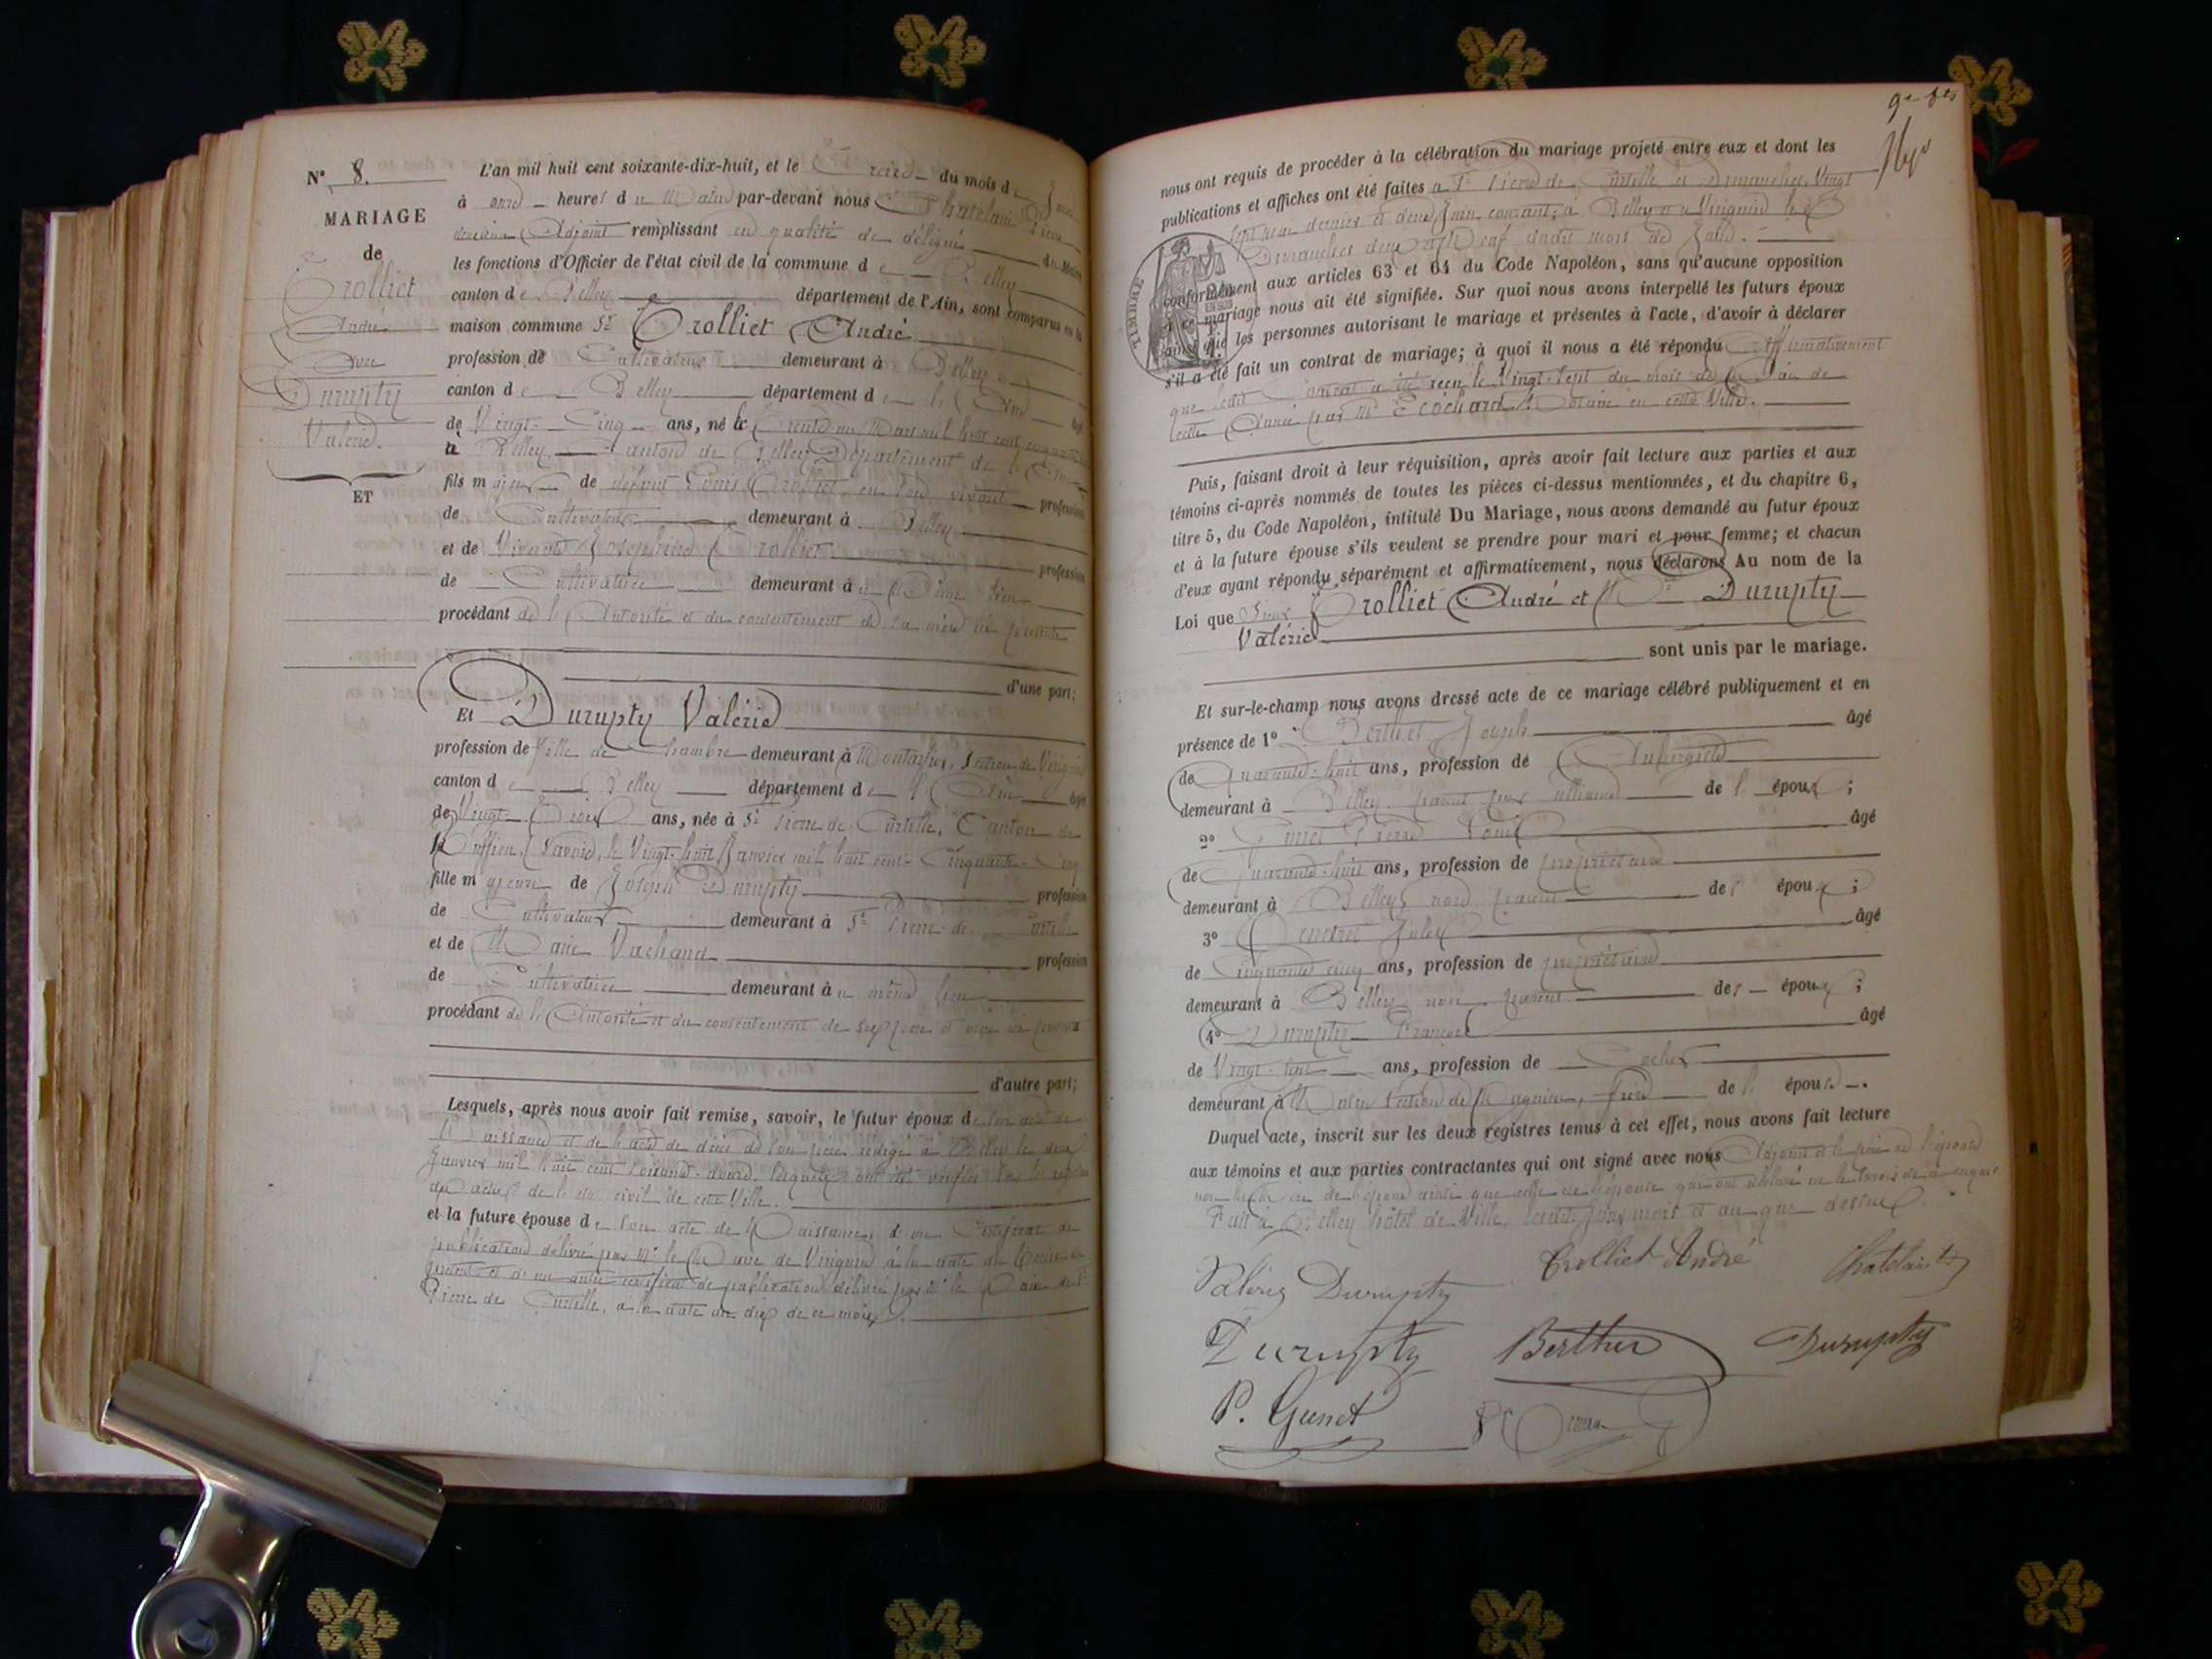 N° 8.
MARIAGE
de
Trolliet
André
Avec
Durupty
Valérie.
ET
L'an mil huit cent soixante-dix-huit, et le Treize du mois de Juin
à onze heures du Matin par-devant nous Chatelain
Adjoint remplissant en qualité de délégué du Maire
les fonctions d'Officier de l'état civil de la commune de Belley
canton de Belley département de l'Ain, sont comparus en la
maison commune Sr Trolliet André
profession de Cultivateur demeurant à Belley
canton de Belley département de l'Ain âgé
de Vingt-Cinq ans, né le Trente un Mars mil huit cent cinquante
à Belley, Canton de Belley Département de l'Ain
fils majeur de défunt Louis Trolliet, en son vivant profession
de Cultivateur demeurant à Belley
et de Vivante Joséphine Trolliet profession
de Cultivatrice demeurant au Même lieu
procédant de l'Autorité et du consentement de sa mère ici présente
d'une part;
Et Durupty Valérie
profession de fille de Chambre demeurant à Montarfier, Section de Virignin
canton de Belley département de l'Ain âgée
de Vingt-Trois ans, née à St Pierre de Curtille, Canton de
Ruffieu, Savoie, le Vingt-huit Janvier mil huit cent Cinquante-Cinq
fille majeure de Joseph Durupty profession
de Cultivateur demeurant à St Pierre de Curtille
et de Marie Vachand profession
de Cultivatrice demeurant au même lieu
procédant de l'Autorité et du consentement de ses père et mère ici présents
d'autre part;
Lesquels, après nous avoir fait remise, savoir, le futur époux de son acte de
Naissance et de l'acte de décès de son père rédigé à Belley le deux
Janvier mil huit cent soixante-douze, lesquels ont été vérifiés sur les registres
des actes de l'état civil de cette Ville.
et la future épouse de son acte de Naissance, d'un Certificat de
publication délivré par Mr le Maire de Virignin à la date du Treize
présent et d'un autre certificat de publication délivré par Mr le Maire de St
Pierre de Curtille, à la date du dix de ce mois.
nous ont requis de procéder à la célébration du mariage projeté entre eux et dont les
publications et affiches ont été faites à St Pierre de Curtille les Dimanches Vingt
sept mai dernier et deux Juin courant; à Belley et à Virignin les
Dimanches deux et Neuf dudit mois de Juin.
conformément aux articles 63 et 64 du Code Napoléon, sans qu'aucune opposition
à ce mariage nous ait été signifiée. Sur quoi nous avons interpellé les futurs époux
ainsi que les personnes autorisant le mariage et présentes à l'acte, d'avoir à déclarer
s'il a été fait un contrat de mariage; à quoi il nous a été répondu Affirmativement
que ledit Contrat a été reçu le Vingt-Sept du mois de Mai de
cette Année par Me Ecochard Notaire en cette Ville.
TIMBRE
Puis, faisant droit à leur réquisition, après avoir fait lecture aux parties et aux
témoins ci-après nommés de toutes les pièces ci-dessus mentionnées, et du chapitre 6,
titre 5, du Code Napoléon, intitulé Du Mariage, nous avons demandé au futur époux
et à la future épouse s'ils veulent se prendre pour mari et pour femme; et chacun
d'eux ayant répondu séparément et affirmativement, nous déclarons Au nom de la
Loi que Sieur Trolliet André et Durupty
Valérie
sont unis par le mariage.
Et sur-le-champ nous avons dressé acte de ce mariage célébré publiquement et en
présence de 1° Berthet Joseph âgé
de Quarante-huit ans, profession de Aubergiste
demeurant à Belley, parent par alliance de l'époux;
2° Gunet Pierre Louis âgé
de Quarante-huit ans, profession de propriétaire
demeurant à Belley, non parent des époux;
3° Jules âgé
de Cinquante cinq ans, profession de propriétaire
demeurant à Belley, non parent des époux;
4° Durupty François âgé
de Vingt-huit ans, profession de Cocher
demeurant à Section de frère de l'épouse.
Duquel acte, inscrit sur les deux registres tenus à cet effet, nous avons fait lecture
aux témoins et aux parties contractantes qui ont signé avec nous Adjoint et le père de l'épouse
non la mère de l'époux ainsi que celle de l'épouse qui ont déclaré ne le savoir de ce requis.
Fait à Belley hôtel de Ville, lesdits jour, mois et an que dessus.
Valérie Durupty Trolliet André Chatelain
Durupty Berthet Durupty
P. Gunet